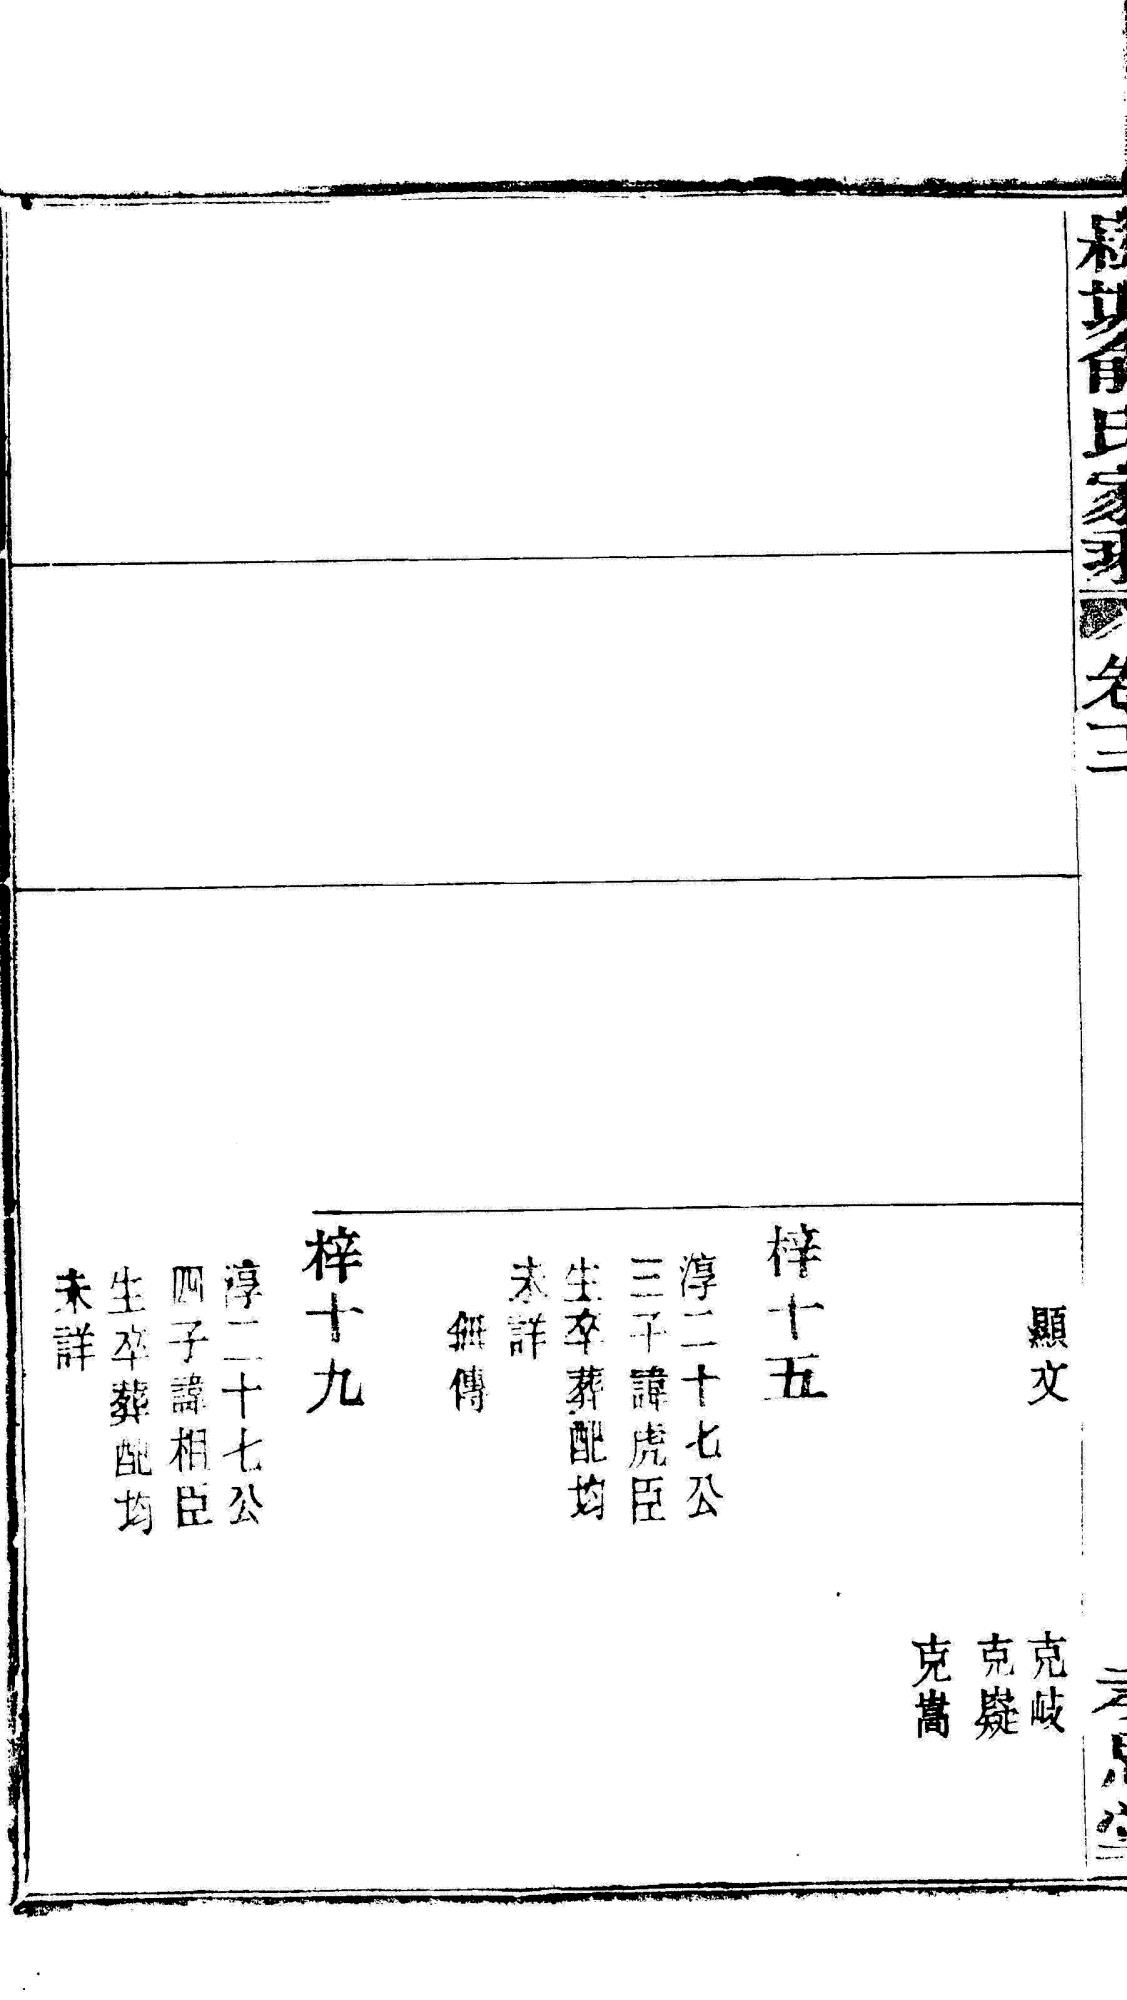 俞氏家
卷三
思堂
顯文
克岐
克嶷
克嵩
梓十五
淳二十七公
三子諱虎臣
生卒葬配均
未詳
無傳
梓十九
淳二十七公
四子諱相臣
生卒葬配均
未詳